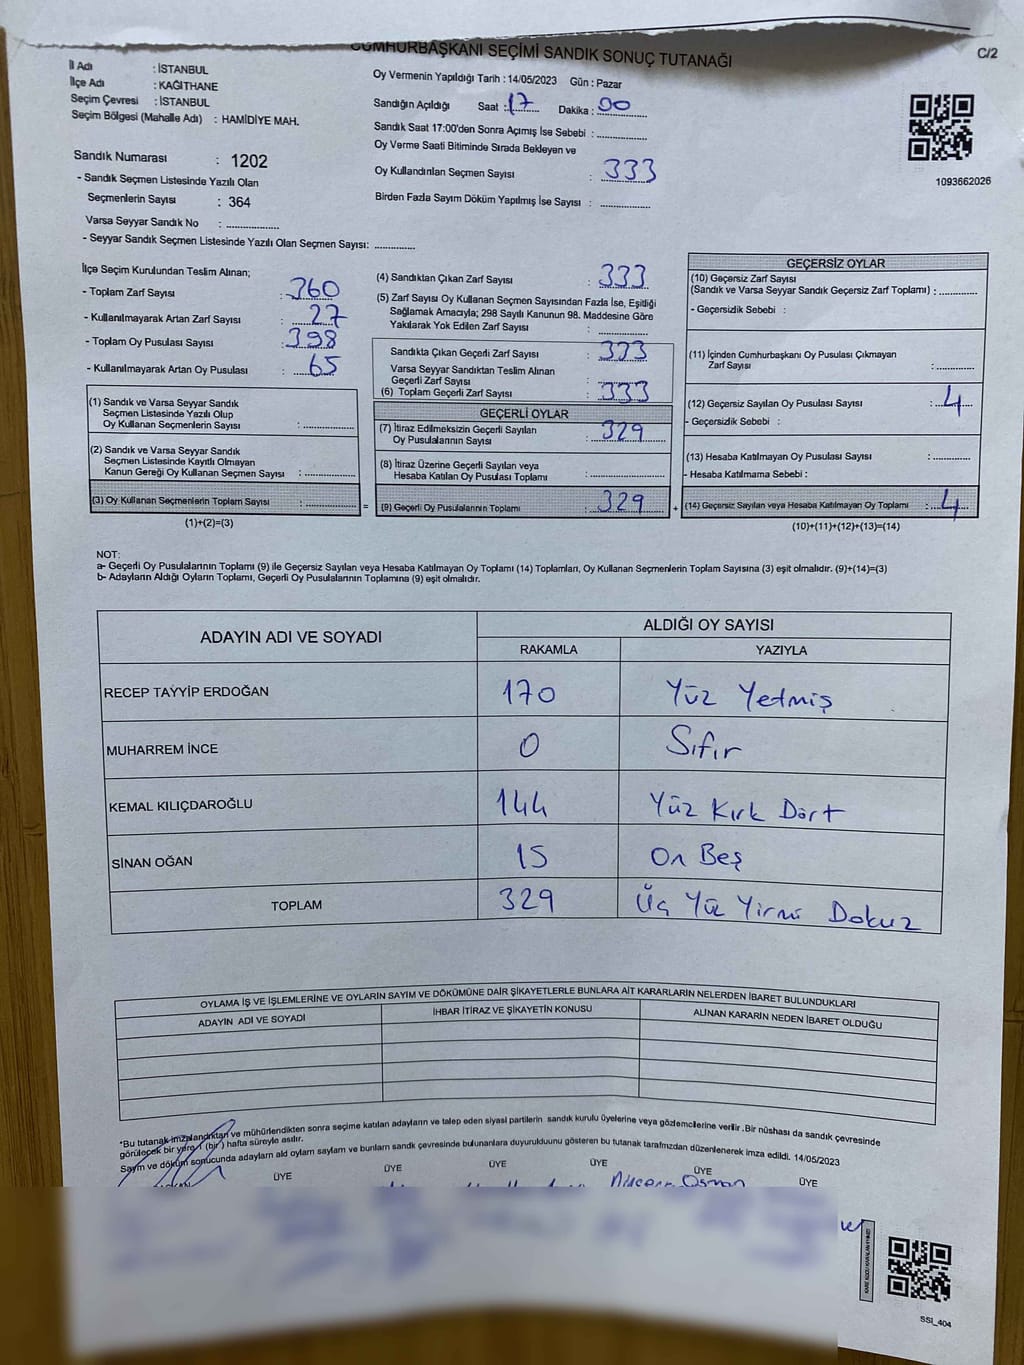 CUMHURBAŞKANI SEÇİMİ SANDIK SONUÇ TUTANAĞI
C/2
İl Adı : İSTANBUL
İlçe Adı : KAĞITHANE
Seçim Çevresi : İSTANBUL
Seçim Bölgesi (Mahalle Adı) : HAMİDİYE MAH.
Sandık Numarası : 1202
- Sandık Seçmen Listesinde Yazılı Olan
Seçmenlerin Sayısı : 364
Varsa Seyyar Sandık No : ................
- Seyyar Sandık Seçmen Listesinde Yazılı Olan Seçmen Sayısı: ............
Oy Vermenin Yapıldığı Tarih : 14/05/2023 Gün : Pazar
Sandığın Açıldığı Saat : 17 Dakika : 00
Sandık Saat 17:00'den Sonra Açımış İse Sebebi : ..............
Oy Verme Saati Bitiminde Sırada Bekleyen ve
Oy Kullandırılan Seçmen Sayısı : 333
Birden Fazla Sayım Döküm Yapılmış İse Sayısı : ..............
1093662026
İlçe Seçim Kurulundan Teslim Alınan;
- Toplam Zarf Sayısı : 360
- Kullanılmayarak Artan Zarf Sayısı : 27
- Toplam Oy Pusulası Sayısı : 398
- Kullanılmayarak Artan Oy Pusulası : 65
(1) Sandık ve Varsa Seyyar Sandık
Seçmen Listesinde Yazılı Olup
Oy Kullanan Seçmenlerin Sayısı : ..............
(2) Sandık ve Varsa Seyyar Sandık
Seçmen Listesinde Kayıtlı Olmayan
Kanun Gereği Oy Kullanan Seçmen Sayısı : ..............
(3) Oy Kullanan Seçmenlerin Toplam Sayısı : ..............
(1)+(2)=(3)
(4) Sandıktan Çıkan Zarf Sayısı : 333
(5) Zarf Sayısı Oy Kullanan Seçmen Sayısından Fazla İse, Eşitliği
Sağlamak Amacıyla; 298 Sayılı Kanunun 98. Maddesine Göre
Yakılarak Yok Edilen Zarf Sayısı : ..............
Sandıkta Çıkan Geçerli Zarf Sayısı : 333
Varsa Seyyar Sandıktan Teslim Alınan
Geçerli Zarf Sayısı : ..............
(6) Toplam Geçerli Zarf Sayısı : 333
GEÇERLİ OYLAR
(7) İtiraz Edilmeksizin Geçerli Sayılan
Oy Pusulalarının Sayısı : 329
(8) İtiraz Üzerine Geçerli Sayılan veya
Hesaba Katılan Oy Pusulası Toplamı : ..............
= (9) Geçerli Oy Pusulalarının Toplamı : 329
GEÇERSİZ OYLAR
(10) Geçersiz Zarf Sayısı
(Sandık ve Varsa Seyyar Sandık Geçersiz Zarf Toplamı) : ............
- Geçersizlik Sebebi :
(11) İçinden Cumhurbaşkanı Oy Pusulası Çıkmayan
Zarf Sayısı : ............
(12) Geçersiz Sayılan Oy Pusulası Sayısı : 4
- Geçersizlik Sebebi :
(13) Hesaba Katılmayan Oy Pusulası Sayısı : ............
- Hesaba Katılmama Sebebi :
+ (14) Geçersiz Sayılan veya Hesaba Katılmayan Oy Toplamı : 4
(10)+(11)+(12)+(13)=(14)
NOT:
a- Geçerli Oy Pusulalarının Toplamı (9) ile Geçersiz Sayılan veya Hesaba Katılmayan Oy Toplamı (14) Toplamları, Oy Kullanan Seçmenlerin Toplam Sayısına (3) eşit olmalıdır. (9)+(14)=(3)
b- Adayların Aldığı Oyların Toplamı, Geçerli Oy Pusulalarının Toplamına (9) eşit olmalıdır.
ADAYIN ADI VE SOYADI ALDIĞI OY SAYISI
RAKAMLA YAZIYLA
RECEP TAYYİP ERDOĞAN 170 Yüz Yetmiş
MUHARREM İNCE 0 Sıfır
KEMAL KILIÇDAROĞLU 144 Yüz Kırk Dört
SİNAN OĞAN 15 On Beş
TOPLAM 329 Üç Yüz Yirmi Dokuz
OYLAMA İŞ VE İŞLEMLERİNE VE OYLARIN SAYIM VE DÖKÜMÜNE DAİR ŞİKAYETLERLE BUNLARA AİT KARARLARIN NELERDEN İBARET BULUNDUKLARI
ADAYIN ADI VE SOYADI İHBAR İTİRAZ VE ŞİKAYETİN KONUSU ALINAN KARARIN NEDEN İBARET OLDUĞU
*Bu tutanak imzalandıktan ve mühürlendikten sonra seçime katılan adayların ve talep eden siyasi partilerin sandık kurulu üyelerine veya gözlemcilerine verilir .Bir nüshası da sandık çevresinde
görülecek bir yere 1 (bir) hafta süreyle asılır.
Sayım ve döküm sonucunda adayların aldı oylam sayılam ve bunların sandk çevresinde bulunanlara duyurulduunu gösteren bu tutanak tarafmzdan düzenlenerek imza edildi. 14/05/2023
ÜYE ÜYE ÜYE ÜYE ÜYE ÜYE
Osman
SSI_404